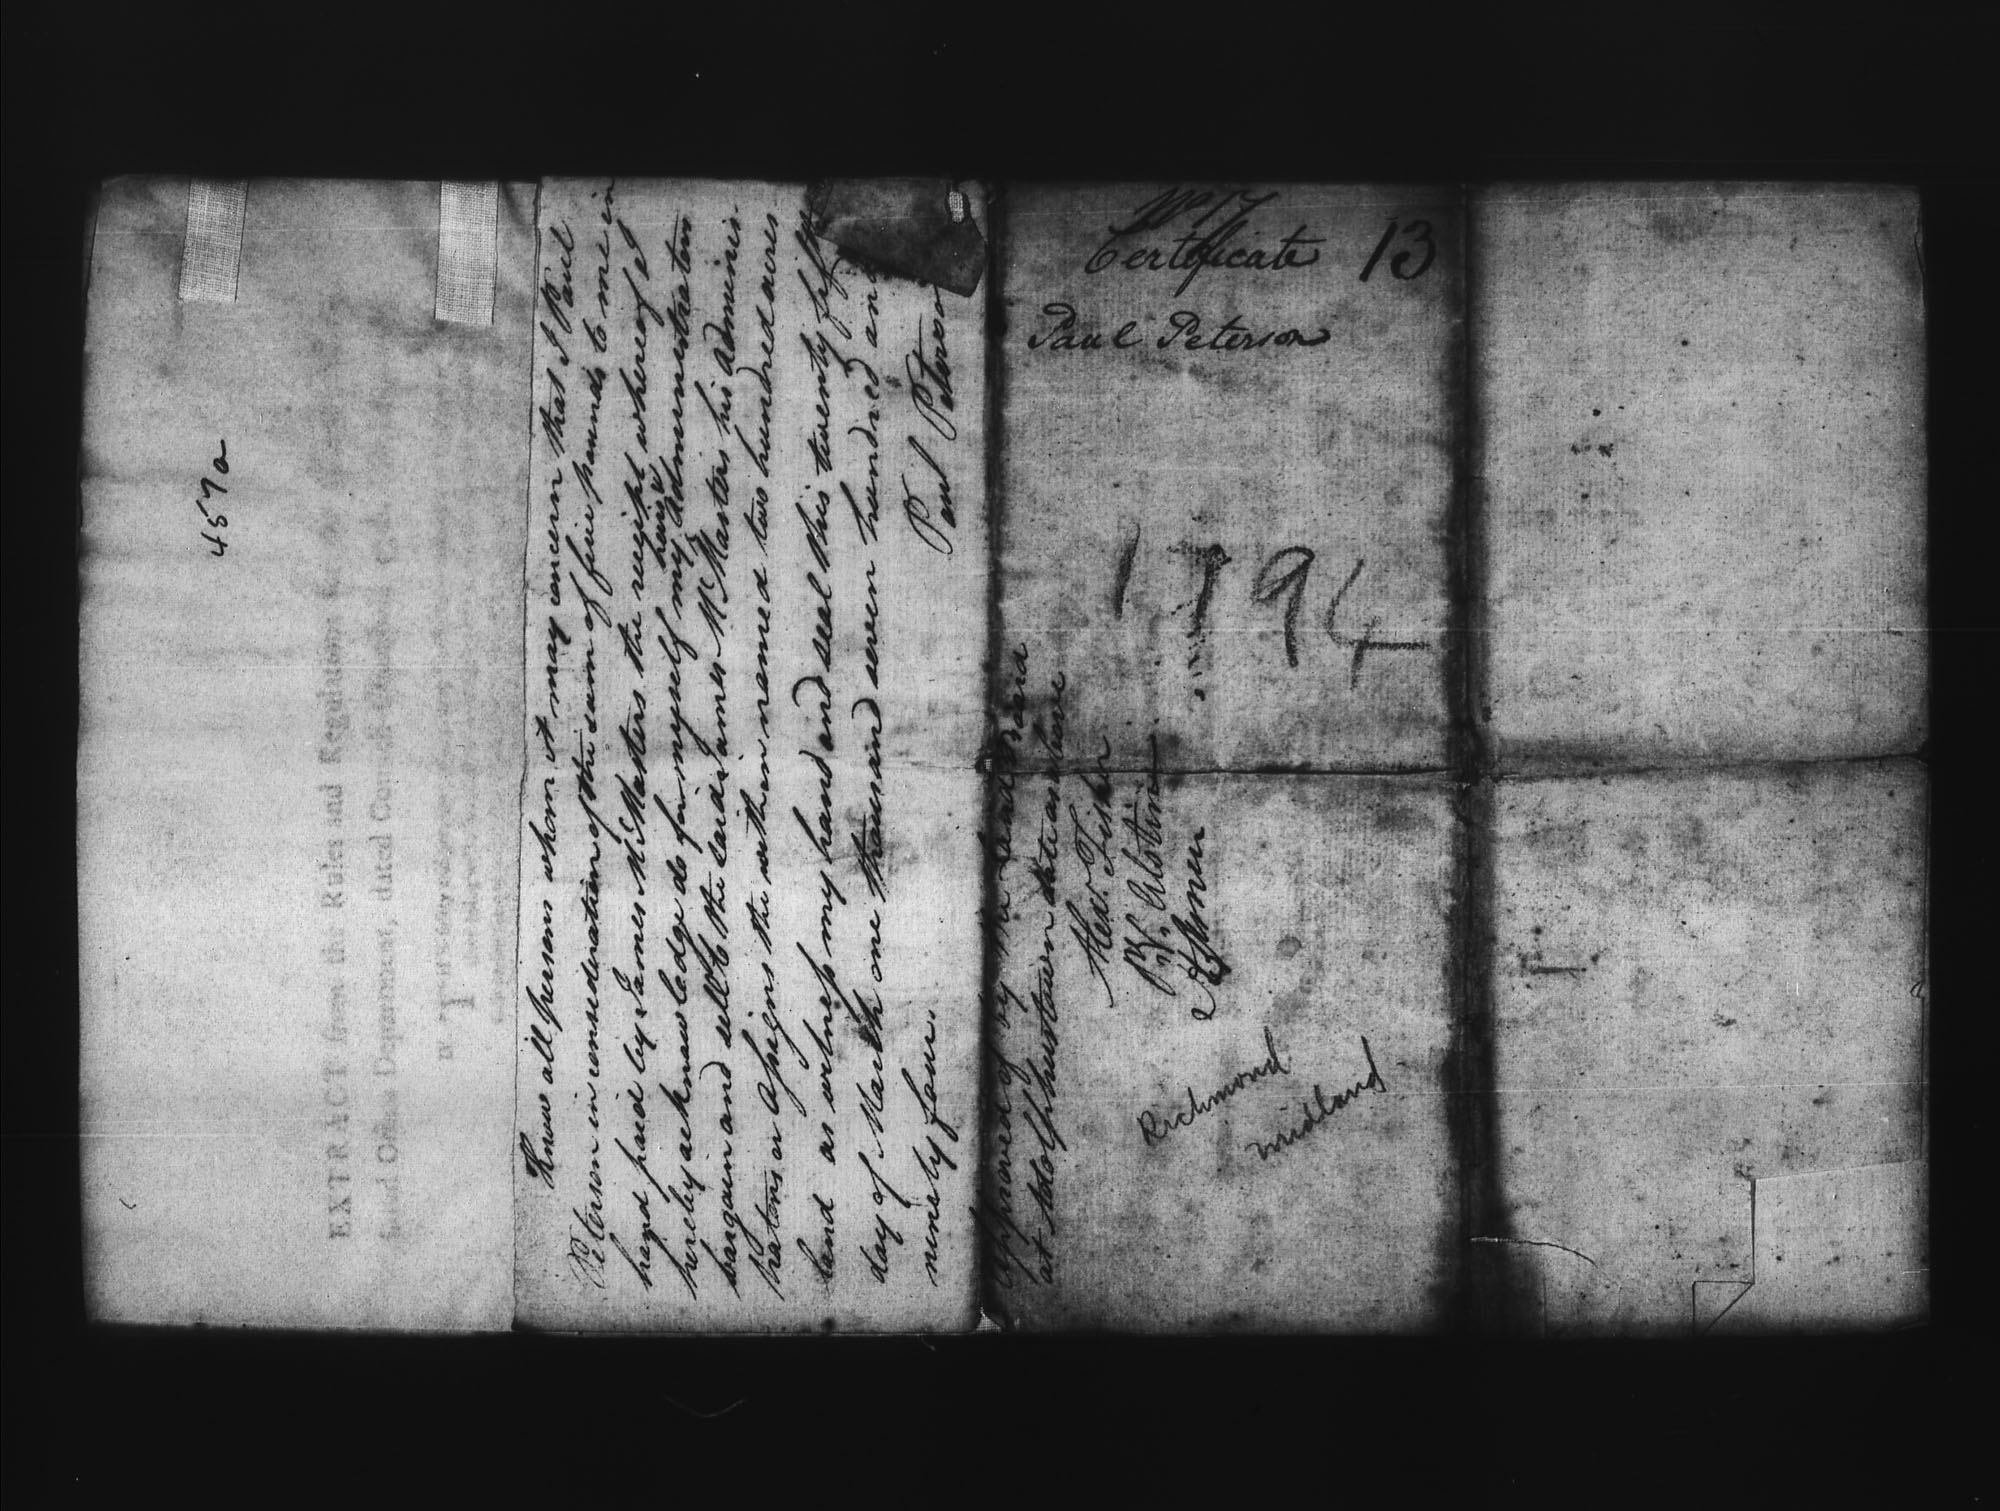 457 a
EXTRACT from the Rules and Regulations
Land Office Department,
Know all persons whom it may concern that I Paul
Peterson in consideration of the sum of five pounds to me in
hand paid by James McMasters the receipt whereof I
hereby acknowledge do for myself my heirs Administrators
bargain and sell to the said James McMasters his Adminis
trators or Assigns the within named two hundred acres
land as witness my hand and seal this twenty
day of March one thousand seven hundred and
ninety four.
Paul Peterson
Approved of by the Land Board
at Adolphustown date as above
Alex. Fisher
No 17
Certificate 13
Paul Peterson
1794
Richmond
Midland